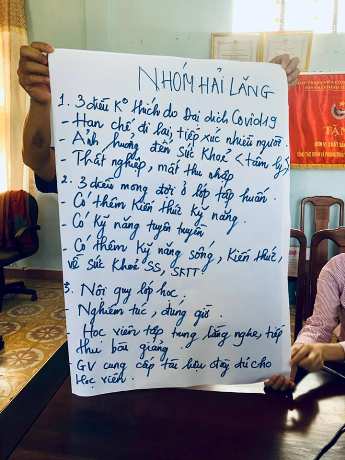 NHÓM HẢI LĂNG
1. 3 điều K° thích do Đại dịch Covid19
- Hạn chế đi lại, tiếp xúc nhiều người.
- Ảnh hưởng đến Sức Khoẻ < tâm lý >
- Thất nghiệp, mất thu nhập
2. 3 điều mong đợi ở lớp tập huấn.
- Có thêm Kiến thức Kỹ năng.
- Có Kỹ năng tuyên truyền
- Có thêm Kỹ năng sống, Kiến thức,
về Sức Khoẻ SS, SKTT
3. Nội quy lớp học,
- Nghiêm túc, đúng giờ.
- Học viên tập trung lắng nghe, tiếp
thu bài giảng
GV cung cấp tài liệu đầy đủ cho
học viên.